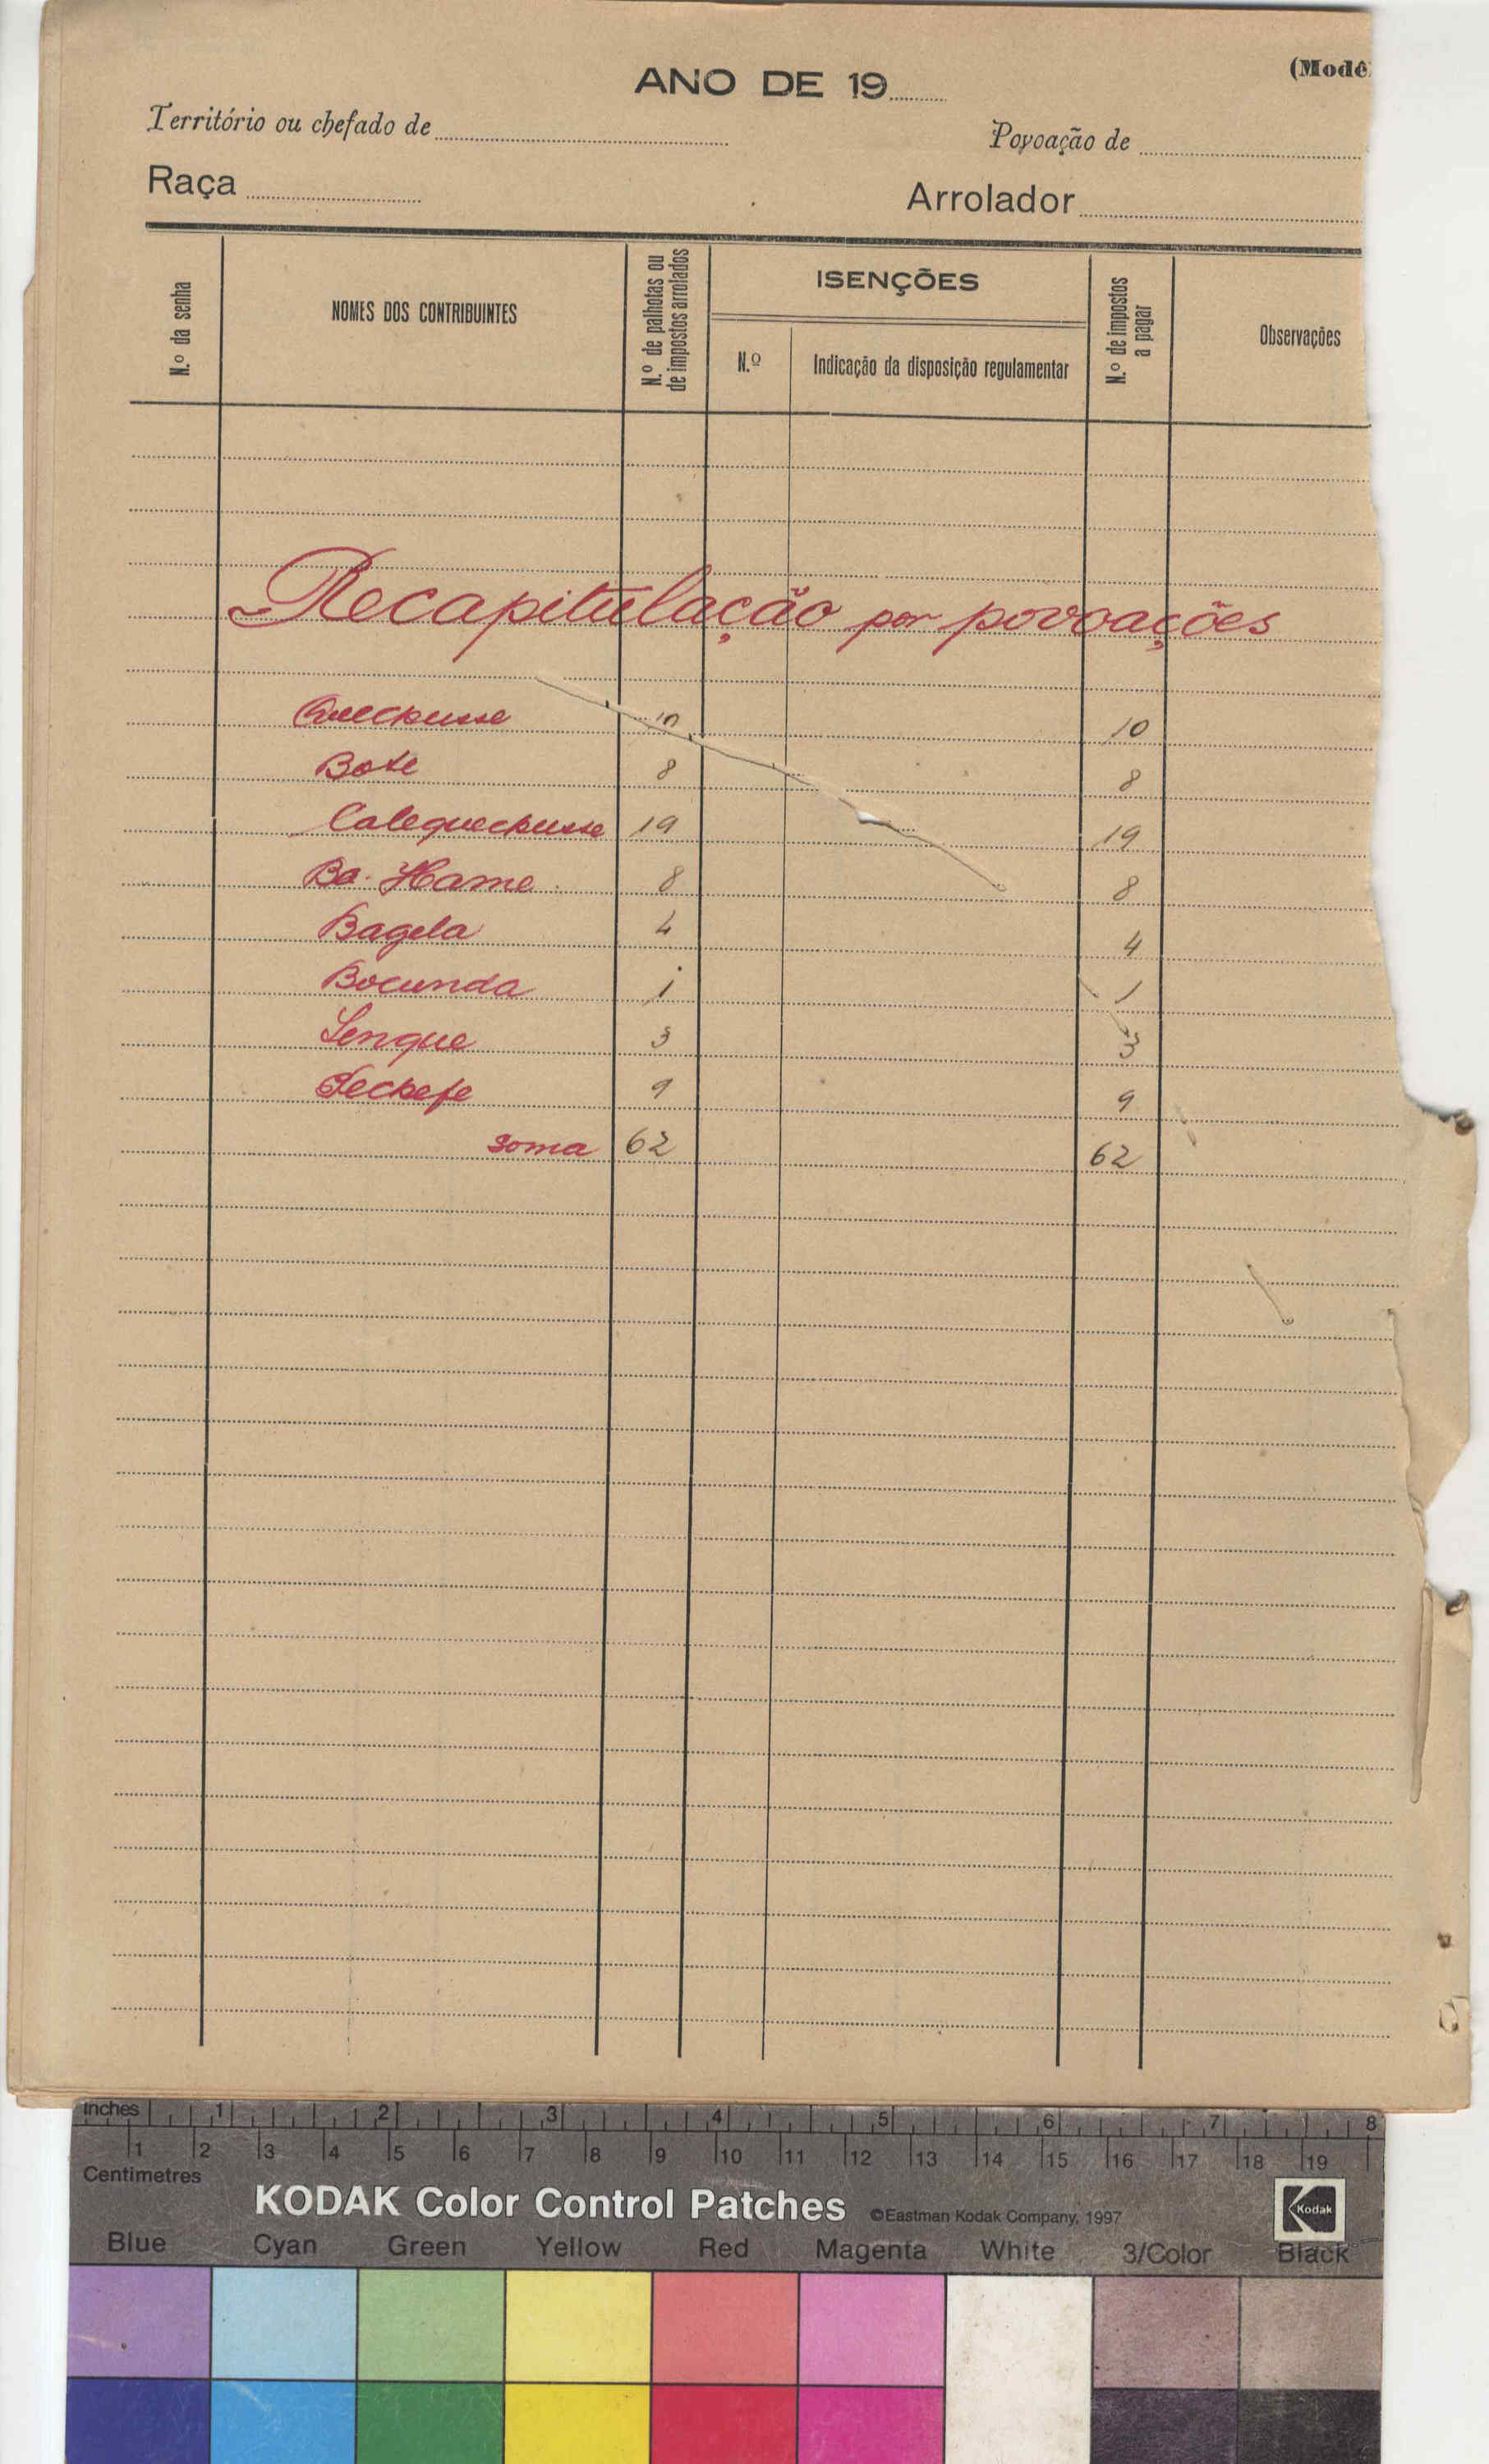 (Modê
ANO DE 19
Território ou chefado de
Povoação de
Raça
Arrolador
N.º da senha
NOMES DOS CONTRIBUINTES
N.º de palhotas ou de impostos arrolados
ISENÇÕES
N.º
Indicação da disposição regulamentar
N.º de impostos a pagar
Observações
Recapitulação por povoações
10 10
Bote 8 8
Calequechusse 19 19
Ba. Hame 8 8
Bagela 4 4
Bocunda 1 1
Lenque 3 3
9 9
soma 62 62
inches 1 2 3 4 5 6 7 8
1 2 3 4 5 6 7 8 9 10 11 12 13 14 15 16 17 18 19
Centimetres
KODAK Color Control Patches ©Eastman Kodak Company, 1997 Kodak
Blue Cyan Green Yellow Red Magenta White 3/Color Black